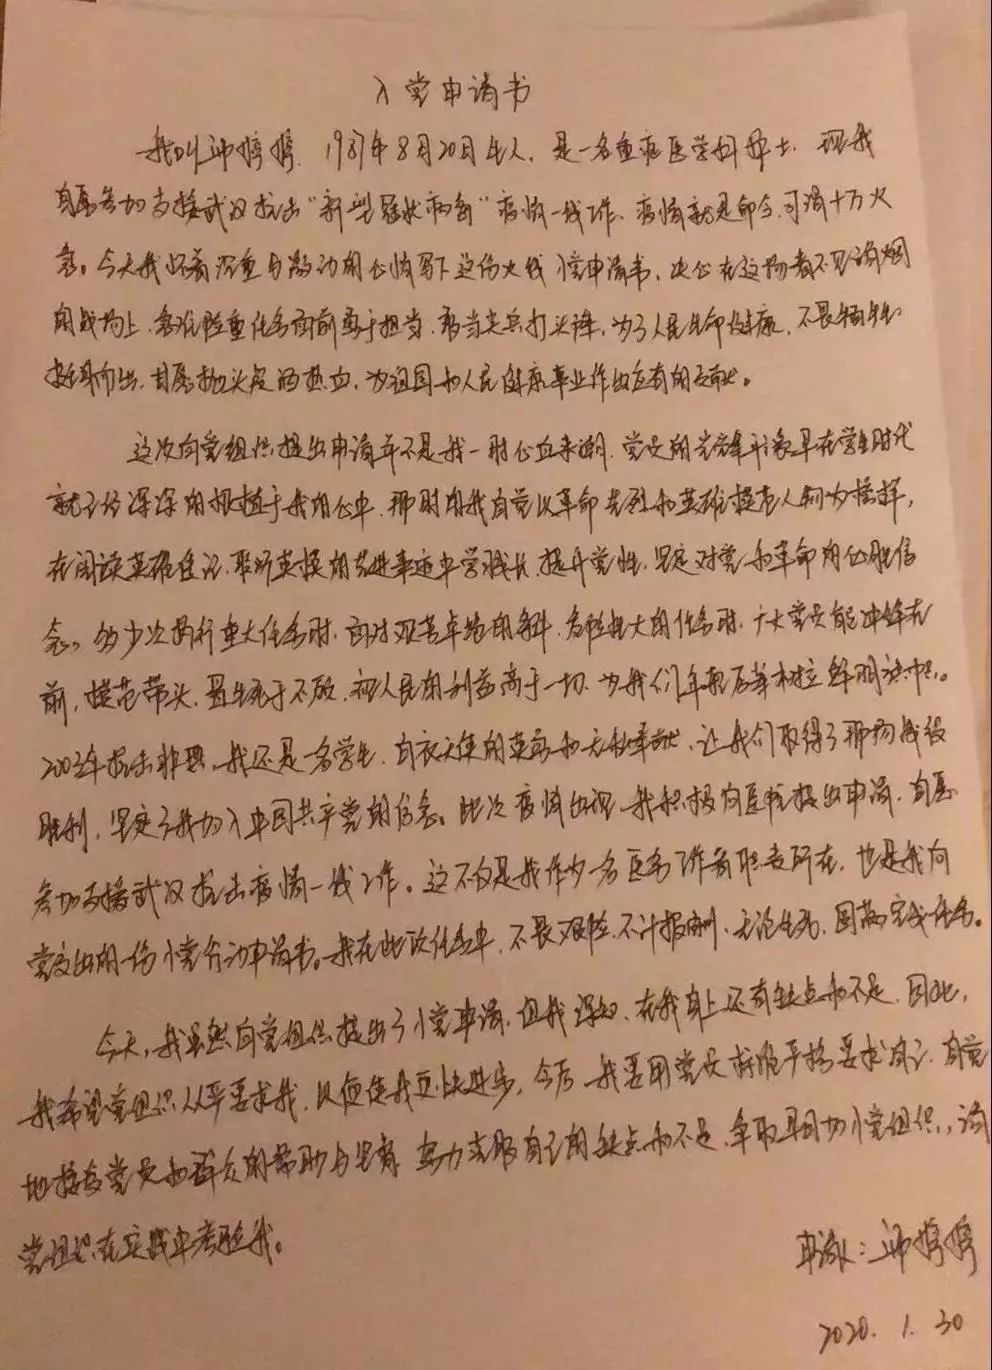 入党申请书
我叫师婷婷，1987年8月20日生人，是一名重症医学科护士，现我
自愿参加支援武汉抗击“新型冠状病毒”疫情一线工作，疫情就是命令，可谓十万火
急。今天我怀着沉重与激动的心情写下这份火线入党申请书，决心在这场看不见硝烟
的战场上，急难险重任务面前勇于担当，敢当先兵打头阵，为了人民生命健康，不畏牺牲
挺身而出，甘愿抛头颅洒热血，为祖国和人民健康事业作出应有的贡献。
这次向党组织提出申请并不是我一时心血来潮，党员的先锋形象早在学生时代
就已经深深的根植于我的心中，那时的我自觉以革命先烈和英雄模范人物为榜样，
在阅读英雄传记，聆听英模的先进事迹中学习成长，提升党性，坚定对党和革命的必胜信
念。多少次执行重大任务时，面对艰苦卓绝的条件，危险极大的任务时，广大党员能冲锋在
前，模范带头，置生死于不顾，视人民的利益高于一切，为我们年轻后辈树立鲜明旗帜。
2003年抗击非典，我还是一名学生，白衣天使的英勇和无私奉献，让我们取得了那场战役
胜利，坚定了我加入中国共产党的信念。此次疫情出现，我积极向医院提出申请，自愿
参加支援武汉抗击疫情一线工作。这不仅是我作为一名医务工作者职责所在，也是我向
党交出的一份入党行动申请书。我在此次任务中，不畏艰险，不计报酬，无论生死，圆满完成任务。
今天，我虽然向党组织提出了入党申请，但我深知，在我身上还有缺点和不足，因此，
我希望党组织从严要求我，以便使我更快进步，今后，我要用党员标准严格要求自己，自觉
地接受党员和群众的帮助与监督，努力克服自己的缺点和不足，争取早日加入党组织，请
党组织在实践中考验我。
申请人：师婷婷
2020.1.30